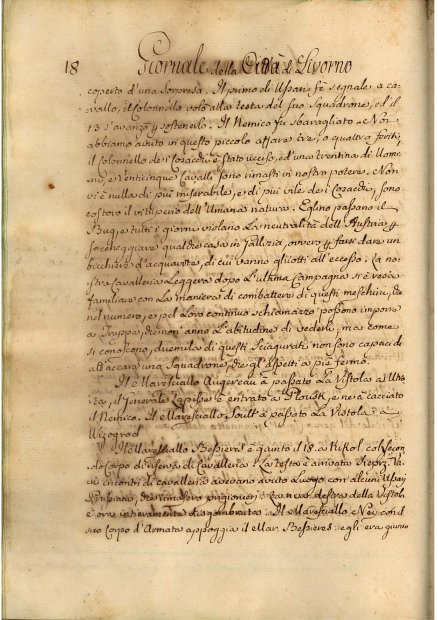 18 Giornale della Città di Livorno
coperto d'una Sororosa. Il primo di Ussari fè segnale a ca-
vallo, il Colonnello volò alla testa del suo Squadrone, ed il
13 s'avanzò sostenerlo. Il Nemico fu sbaragliato. Noi
abbiamo avuto in questo piccolo affare tre, o quattro feriti,
il Colonnello dei Cosacchi è stato ucciso, ed una trentina di Uomi-
ni, e Venticinque Cavalli sono rimasti in nostro potere. Non
vi è nulla di più miserabile, e di più vile dei Cosacchi, sono
costoro il vitupero dell'Umana natura. Eglino passano il
Bug, e tutti i giorni violano La neutralità dell'Austria
saccheggiare qualche casa in Gallizia, ovvero farsi dare un
bicchiere d'acquavite, di cui vanno ghiotti all'eccesso: La no-
stra Cavalleria Leggera dopo L'ultima Campagna si è resa
familiare con La maniera di combattere di questi meschini, che
nel numero, e pel Loro continuo schiamazzo possono imporre
a Truppe, che non anno L'abitudine di vederli, ma come
si conoscono, duemila di questi Sciagurati non sono capaci di
attaccare una Squadrone, che gl'aspetti a piè fermo.
Il Maresciallo Augereau à passato La Vistola a
il Generale Lapisse è entrato a Plousk, e ne à cacciato
il Nemico. Il Maresciallo Soult à passato La Vistola a
Wizogrod
Il Maresciallo Bessieres è giunto il 18. a Kikol col Secon-
do Corpo di riserva di Cavalleria: La testa è arrivata
incontri di cavalleria avevano avuto Luogo con alcuni Ussari
Prussiani, che rimasero prigionieri: La riva destra della Vistola
è ora intieramente sgombrata: Il Maresciallo Ney con il
suo Corpo d'Armata appoggia il Mar. Bessieres: egli era giunto